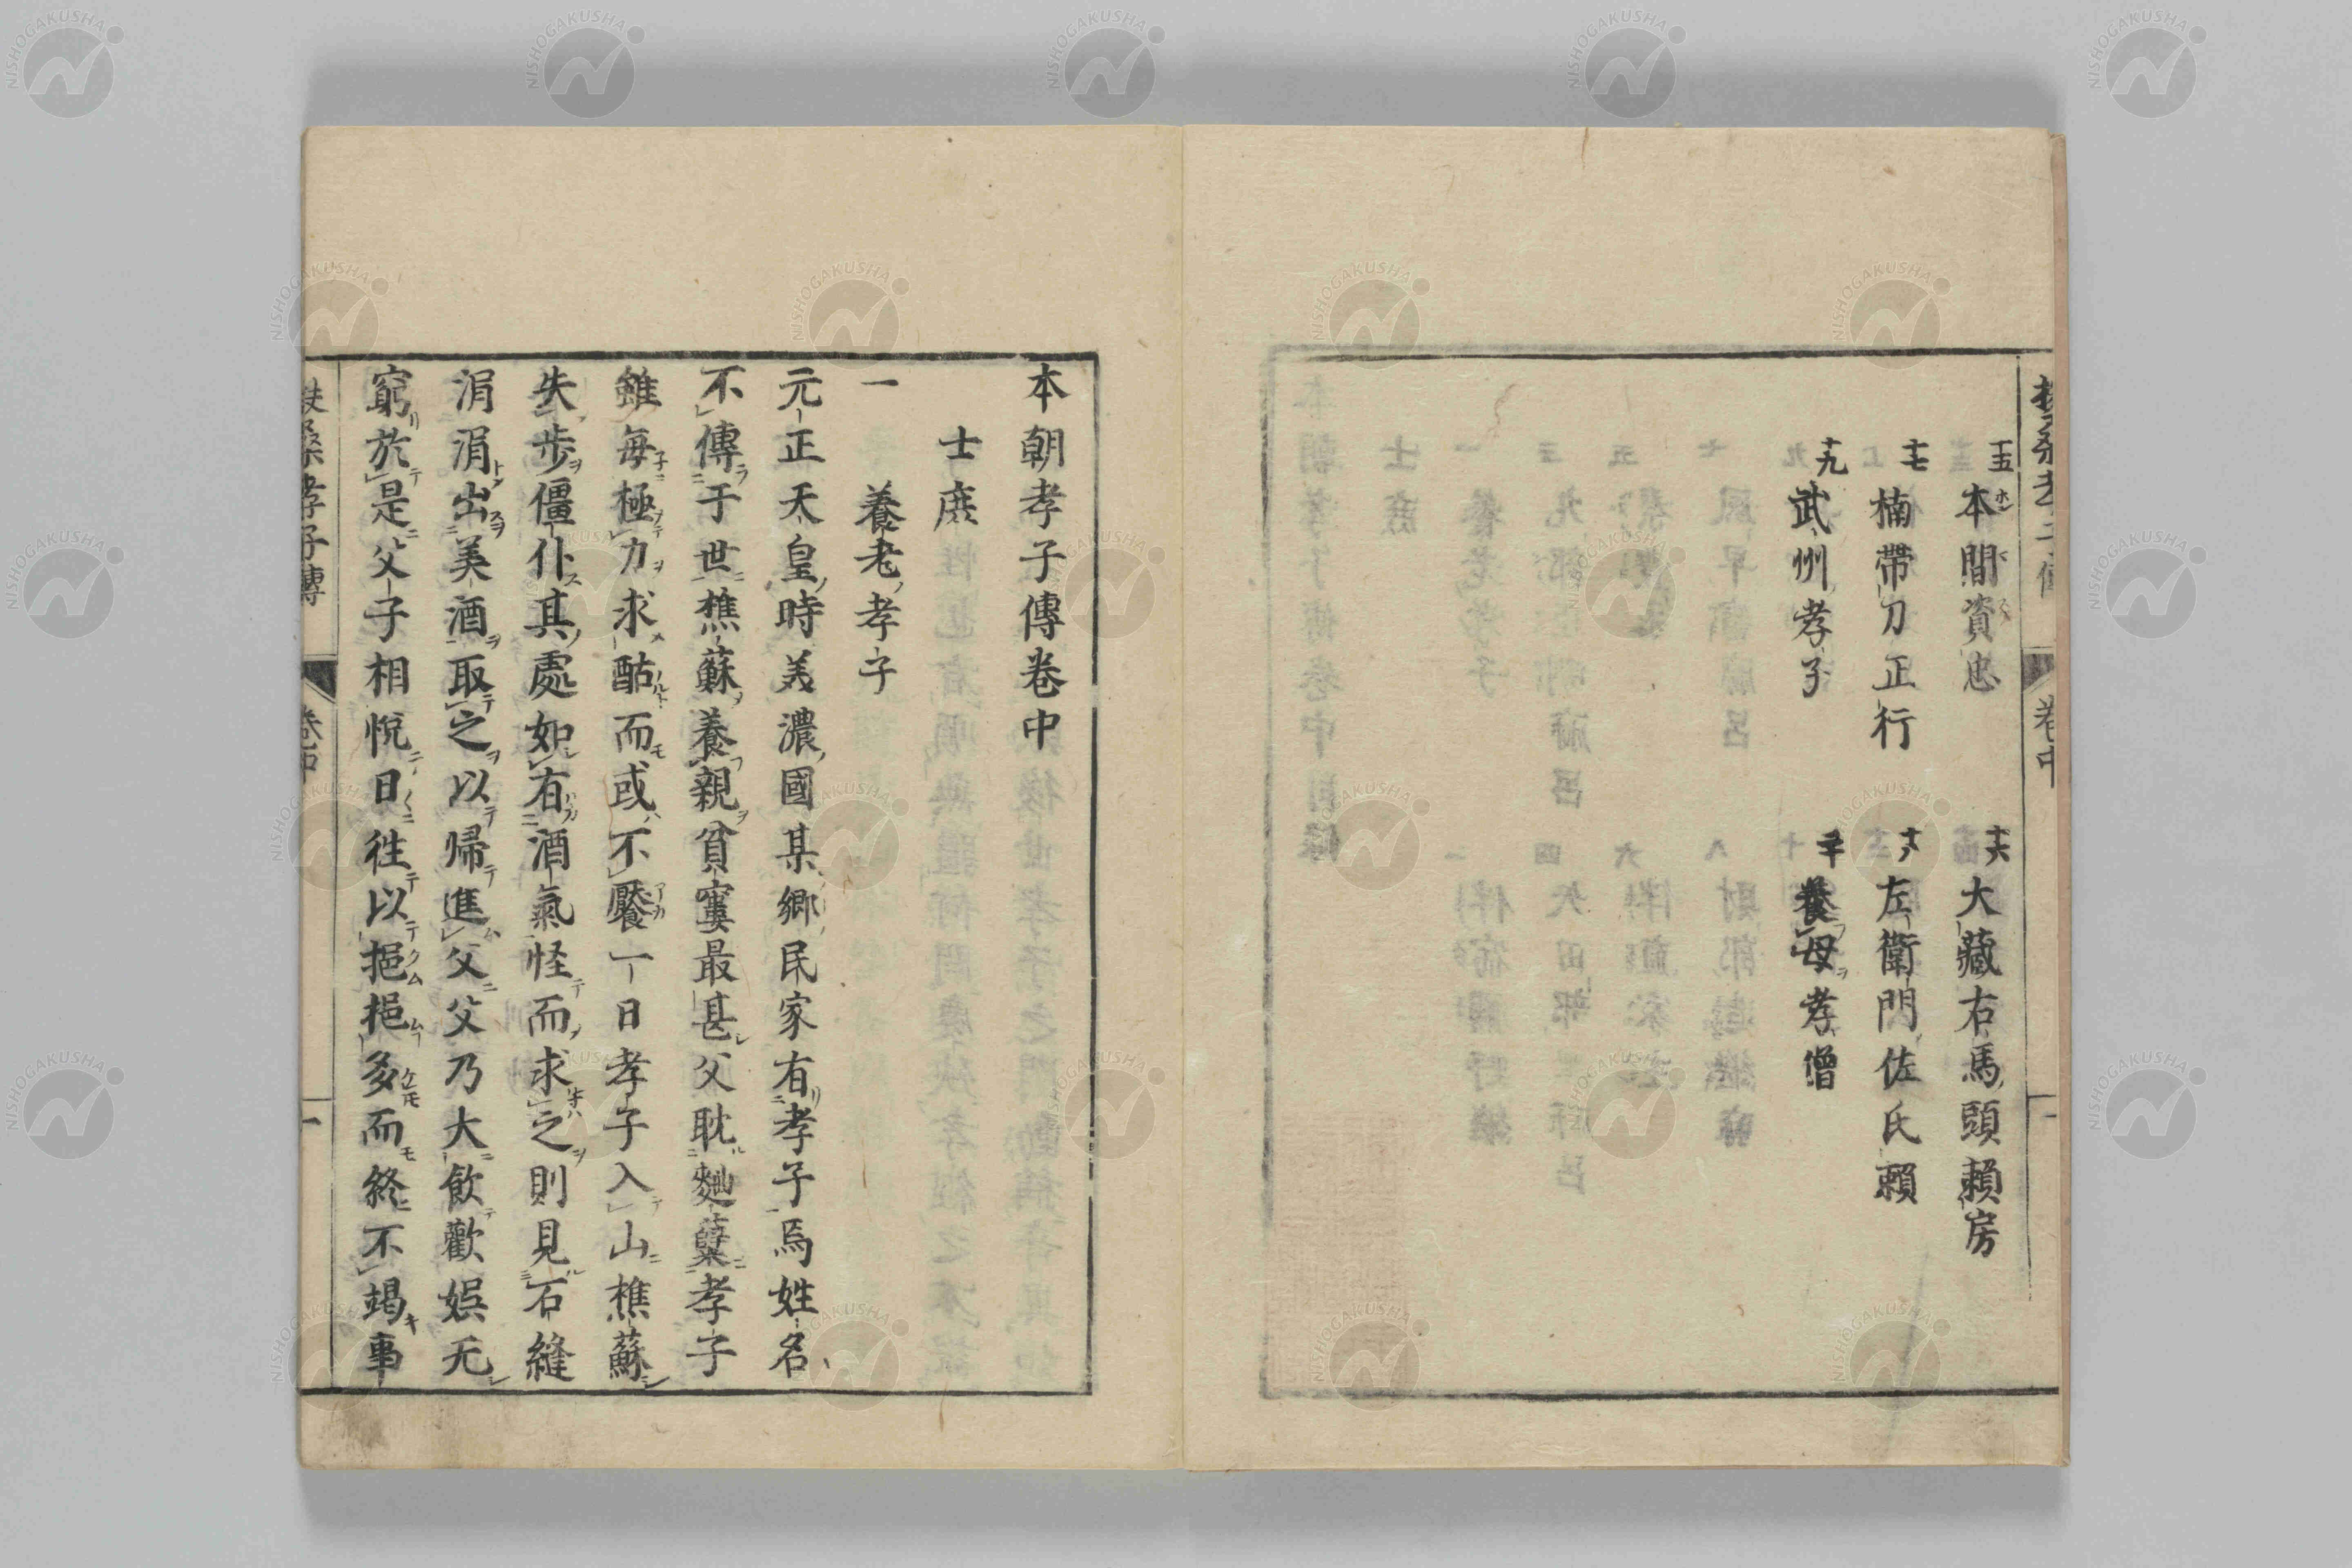 十五 本間資忠
十六 大藏右馬頭賴房
十七 楠帶刀正行
十八 左衛門佐氏賴
十九 武州孝子
二十 養母孝僧
卷中
本朝孝子傳卷中
士庶
一 養老孝子
元正天皇時美濃國某鄉民家有孝子焉姓名
不傳于世樵蘇養親貧窶最甚父耽麹蘗孝子
雖每極力求酤而或不饜一日孝子入山樵蘇
失步僵仆其處如有酒氣怪而求之則見石縫
涓涓出美酒取之以帰進父父乃大飲歡娯无
窮於是父子相悅日往以挹挹多而終不竭事
扶桑孝子傳 卷中 一
NISHOGAKUSHA